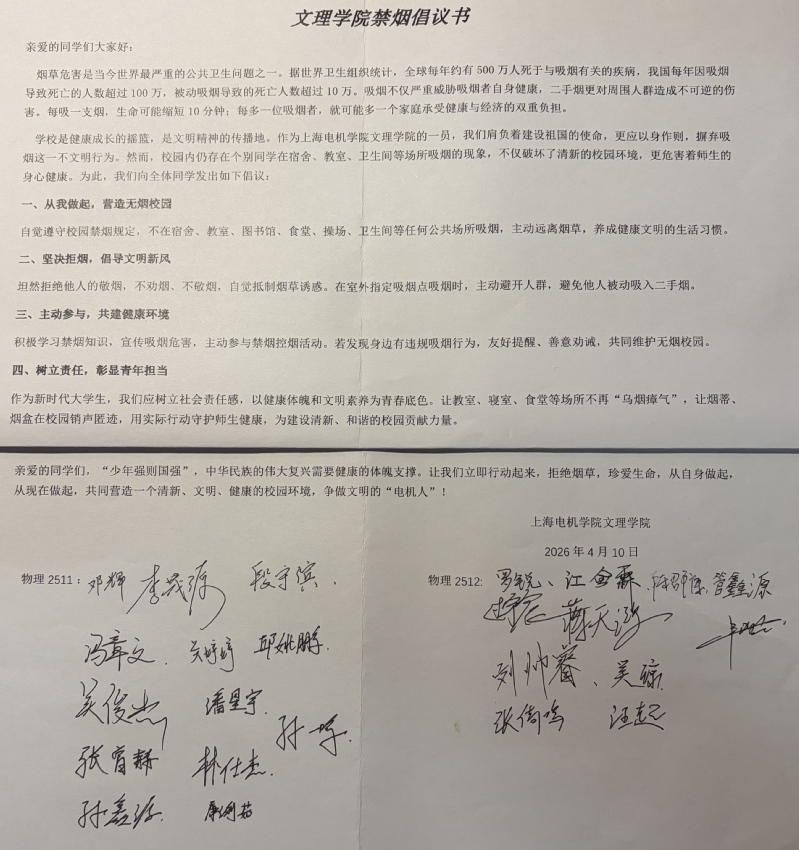 文理学院禁烟倡议书
亲爱的同学们大家好：
烟草危害是当今世界最严重的公共卫生问题之一。据世界卫生组织统计，全球每年约有 500 万人死于与吸烟有关的疾病，我国每年因吸烟
导致死亡的人数超过 100 万，被动吸烟导致的死亡人数超过 10 万。吸烟不仅严重威胁吸烟者自身健康，二手烟更对周围人群造成不可逆的伤
害。每吸一支烟，生命可能缩短 10 分钟；每多一位吸烟者，就可能多一个家庭承受健康与经济的双重负担。
学校是健康成长的摇篮，是文明精神的传播地。作为上海电机学院文理学院的一员，我们肩负着建设祖国的使命，更应以身作则，摒弃吸
烟这一不文明行为。然而，校园内仍存在个别同学在宿舍、教室、卫生间等场所吸烟的现象，不仅破坏了清新的校园环境，更危害着师生的
身心健康。为此，我们向全体同学发出如下倡议：
一、从我做起，营造无烟校园
自觉遵守校园禁烟规定，不在宿舍、教室、图书馆、食堂、操场、卫生间等任何公共场所吸烟，主动远离烟草，养成健康文明的生活习惯。
二、坚决拒烟，倡导文明新风
坦然拒绝他人的敬烟，不劝烟、不敬烟，自觉抵制烟草诱惑。在室外指定吸烟点吸烟时，主动避开人群，避免他人被动吸入二手烟。
三、主动参与，共建健康环境
积极学习禁烟知识，宣传吸烟危害，主动参与禁烟控烟活动。若发现身边有违规吸烟行为，友好提醒、善意劝诫，共同维护无烟校园。
四、树立责任，彰显青年担当
作为新时代大学生，我们应树立社会责任感，以健康体魄和文明素养为青春底色。让教室、寝室、食堂等场所不再“乌烟瘴气”，让烟蒂、
烟盒在校园销声匿迹，用实际行动守护师生健康，为建设清新、和谐的校园贡献力量。
亲爱的同学们，“少年强则国强”，中华民族的伟大复兴需要健康的体魄支撑。让我们立即行动起来，拒绝烟草，珍爱生命，从自身做起，
从现在做起，共同营造一个清新、文明、健康的校园环境，争做文明的“电机人”！
上海电机学院文理学院
2026 年 4 月 10 日
物理 2511：邓辉 李茂源 段宇滨、
冯章文、关婷婷 邱姚鹏
吴俊杰 潘星宇、
张宵赫 林仕杰、
孙鑫源
物理 2512: 罗锐、江鱼霖、管鑫源
蒋天
刘帅睿、吴琼
张倚鸣 汪起